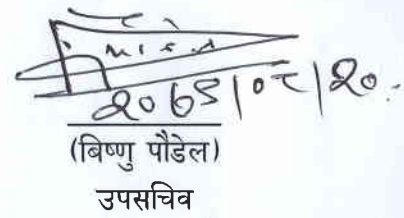 २०७९।०८।२०.
(बिष्णु पौडेल)
उपसचिव